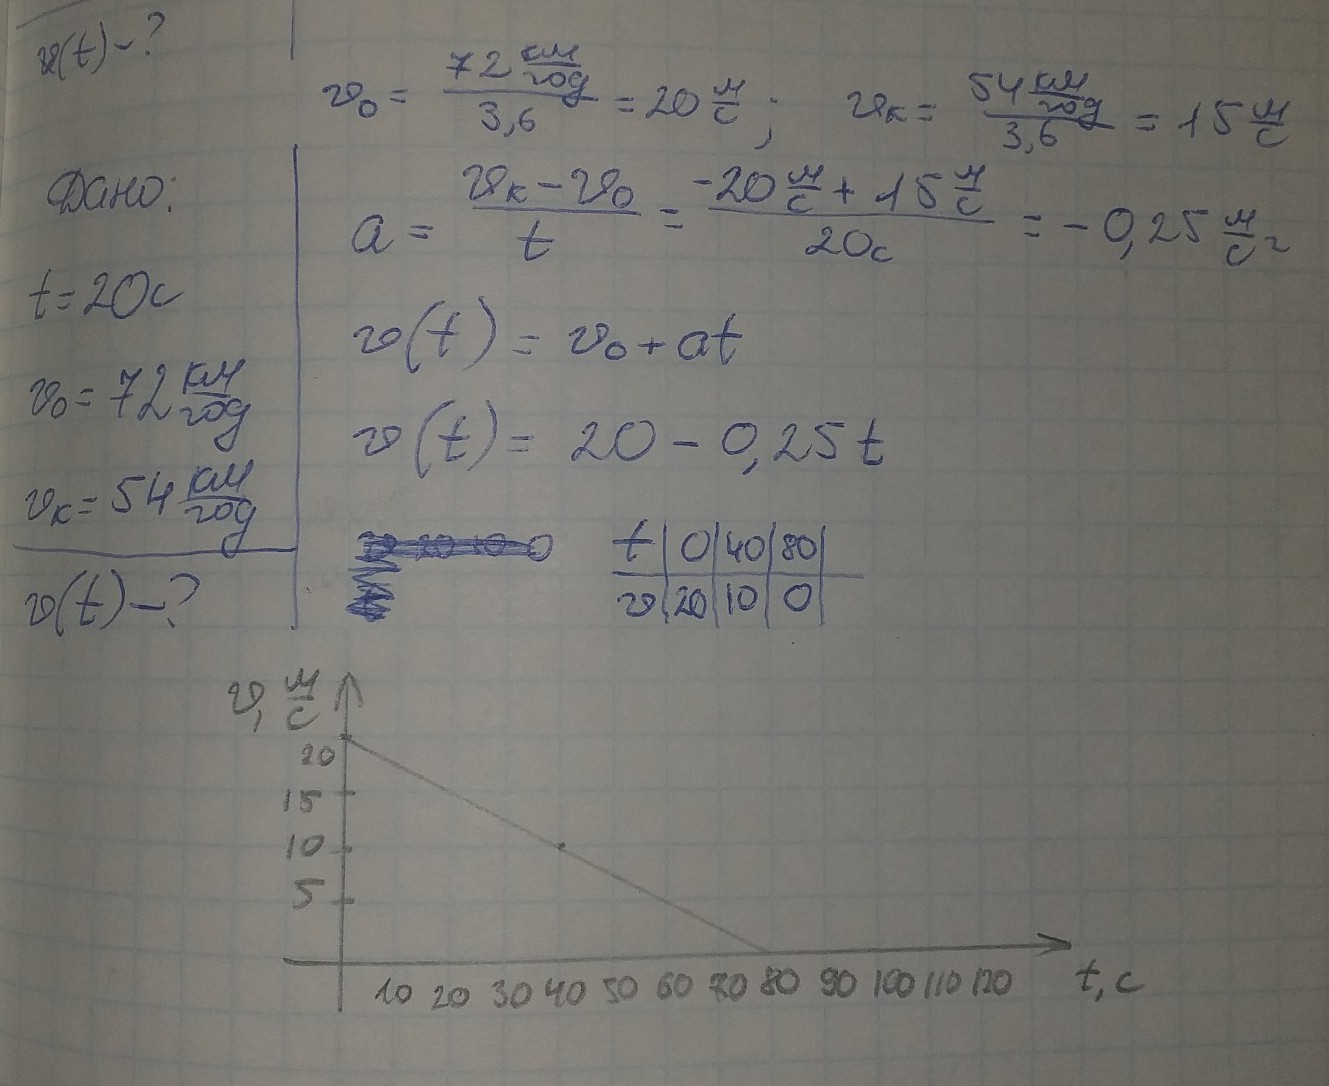 v(t) – ?
v₀ = 72 км/год / 3,6 = 20 м/с ; vк = 54 км/год / 3,6 = 15 м/с
Дано:
t = 20с
v₀ = 72 км/год
vк = 54 км/год
v(t) – ?
a = vк – v₀ / t = -20 м/с + 15 м/с / 20с = - 0,25 м/с²
v(t) = v₀ + at
v(t) = 20 – 0,25t
t | 0 | 40 | 80 |
v | 20 | 10 | 0 |
v, м/с
20
15
10
5
10 20 30 40 50 60 70 80 90 100 110 120 t, с